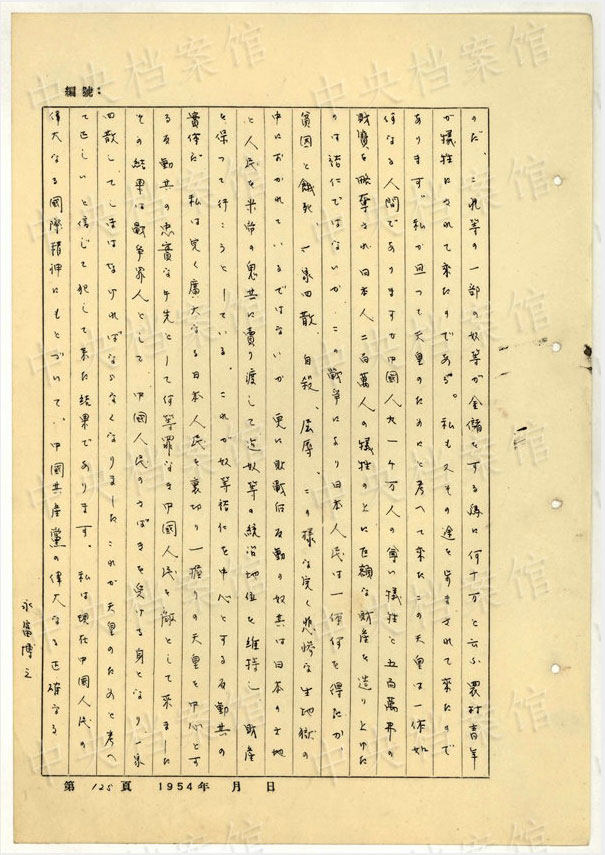 編號：
のだ、これ等の一部の奴等が金儲をする為に何十万と云ふ農村青年
が犠牲にされて来たのである。私も又その途を歩まされて来たので
あります。私が且つて天皇のためにと考へて来たこの天皇は一体如
何なる人間でありますか中国人民一千万人の尊い犠牲と五百萬弗の
財貨を略奪され日本人二百萬人の犠牲のもとに巨額な財産を造り上げた
のは裕仁ではないか、この戦争により日本人民は一体何を得たか、
貧困と餓死、一家四散、自殺、屈辱、この様な全く悲惨な生地獄の
中におかれているではないか 更に敗戦后反動の奴共は日本の土地
と人民を米帝の鬼共に賣り渡して迄奴等の統治地位を維持し財産
を保って行こうとしている。これが奴等裕仁を中心とする反動共の
實体だ 私は全く廣大なる日本人民を裏切り一握りの天皇を中心とす
る反動共の忠實な手先として何等罪なき中國人民を敵として来ました
その結果は戦争罪人として、中國人民のさばきを受ける身となり、一家
四散してしまはなければならなくなりました これが天皇のためと考へ
て正しいと信じて犯して来た結果であります。私は現在中国人民の
偉大なる國際精神にもとづいて、中國共産黨の偉大なる正確なる
永富博之
第 125 頁 1954年 月 日
中央档案馆